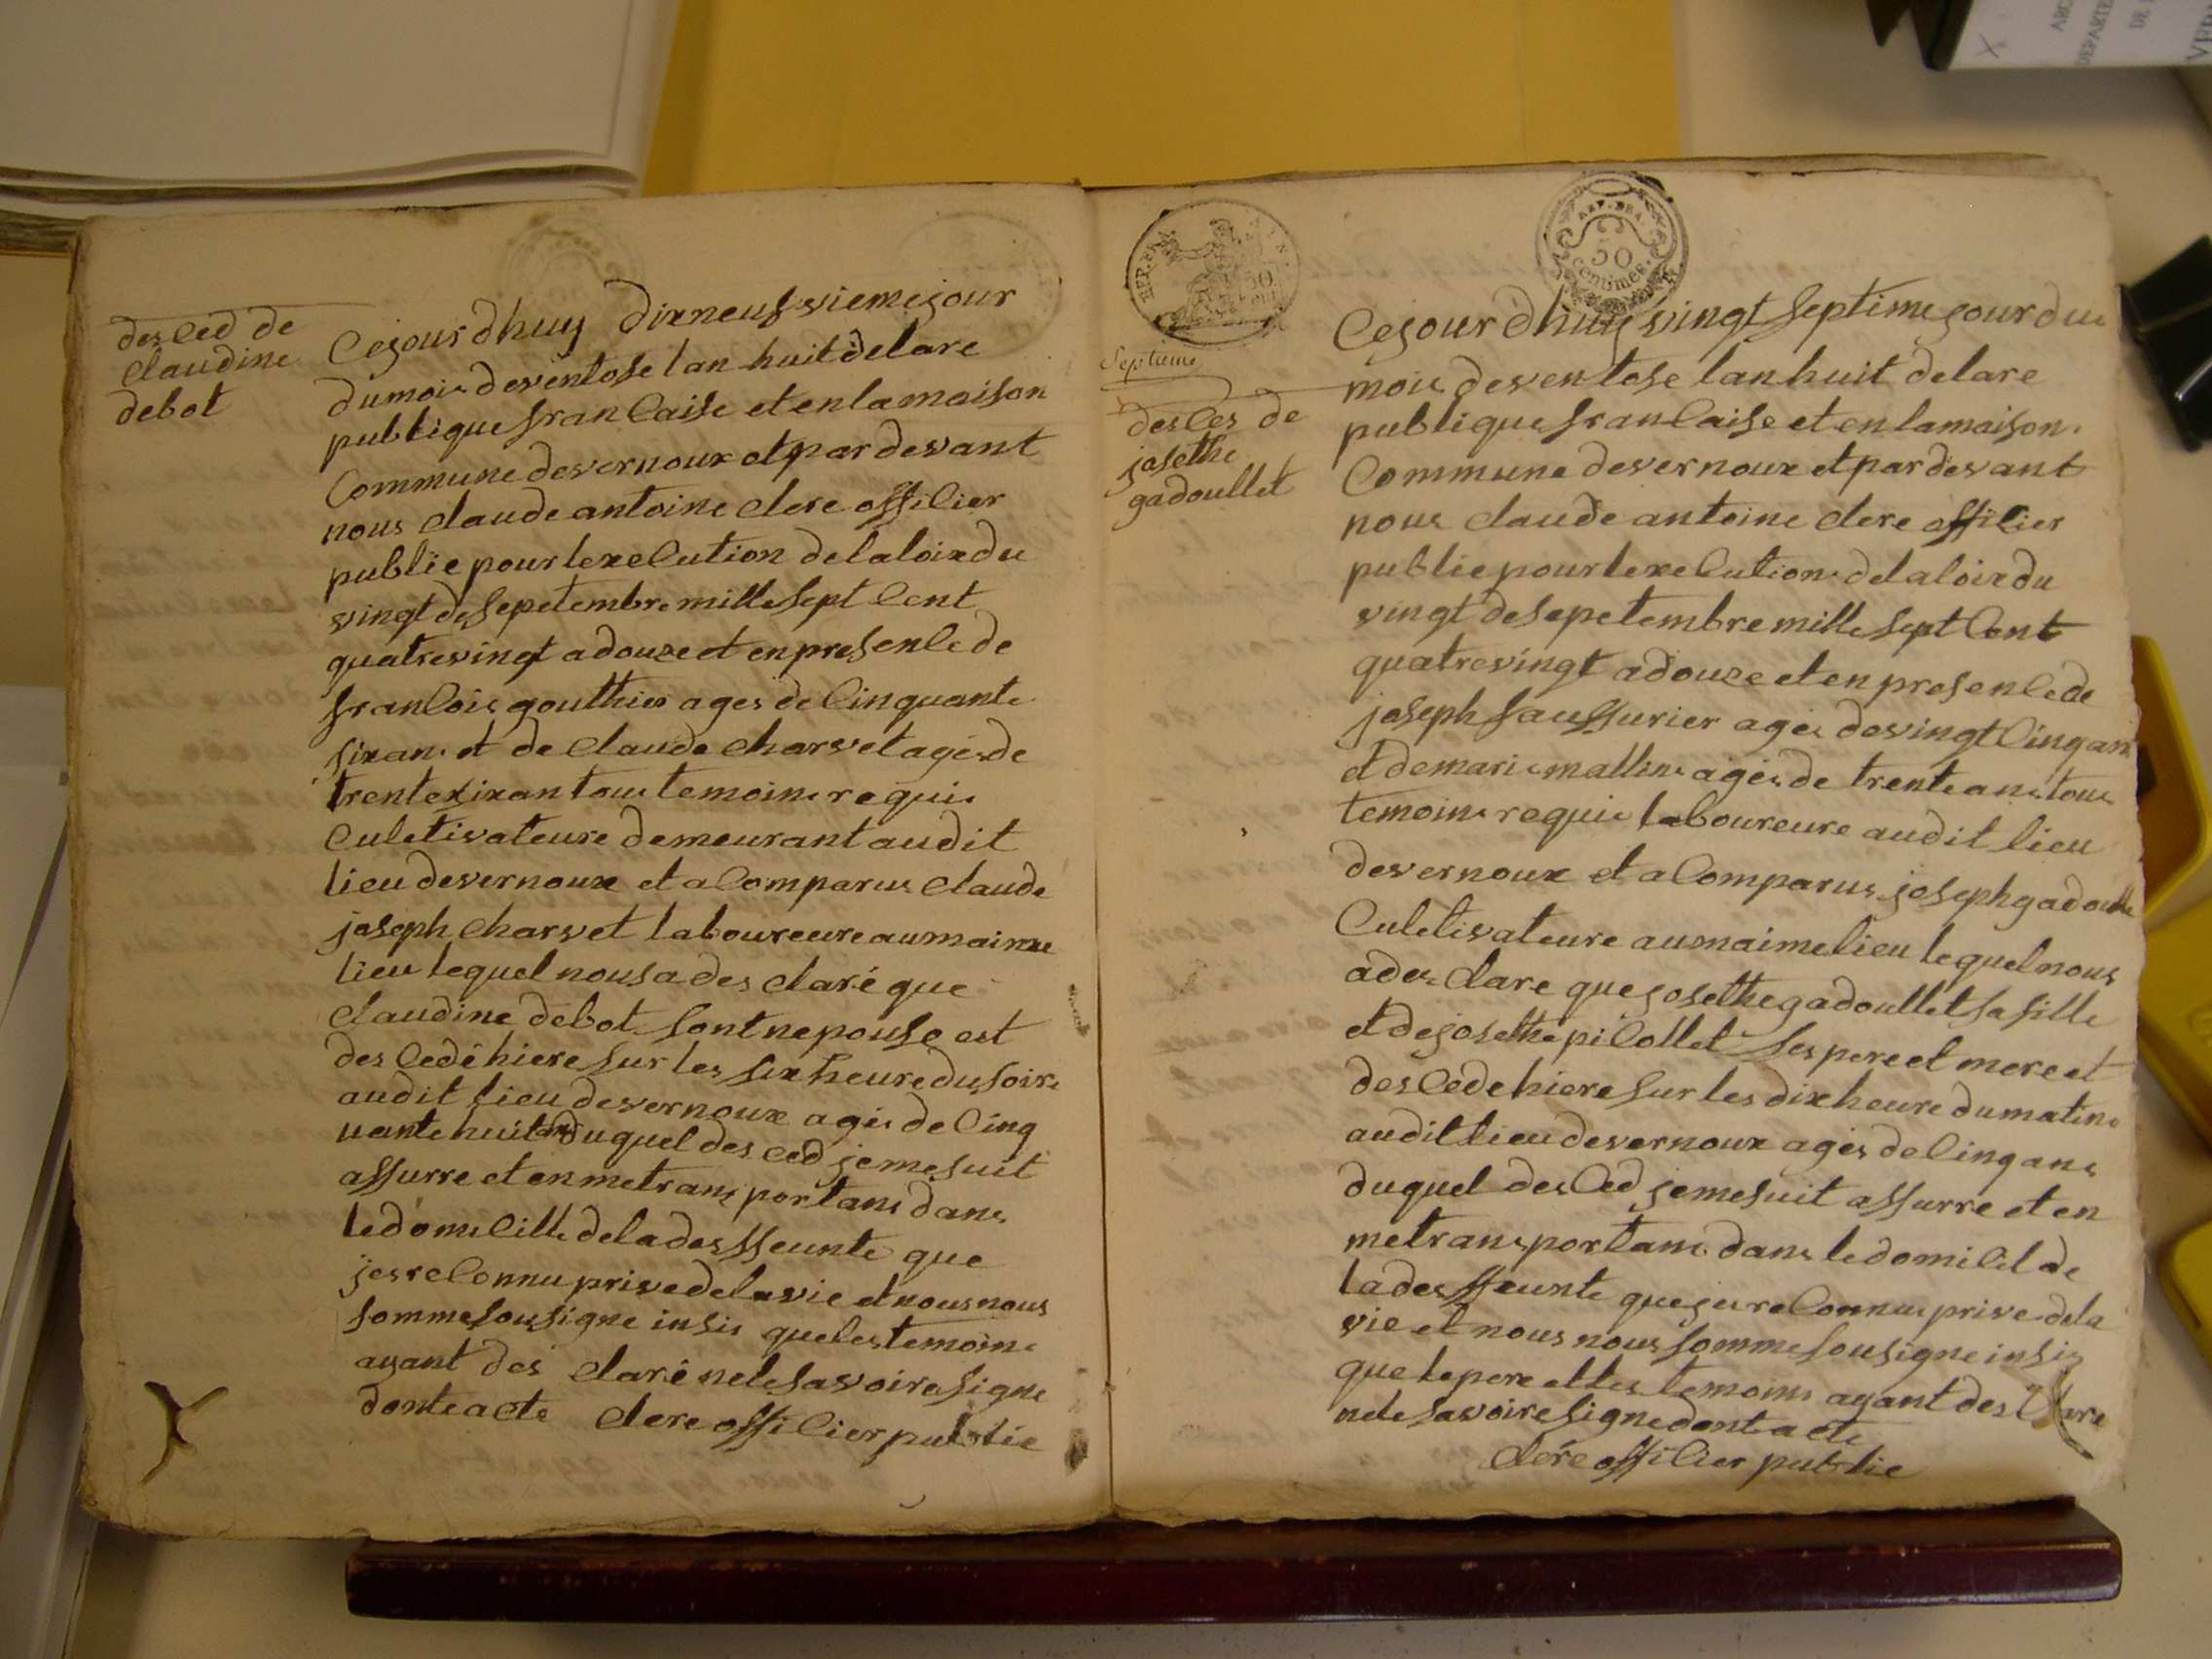 des ced de
claudine
debot
Cejourdhuy dixneufvieme jour
du mois de ventose lan huit de la re
publique francaise et en la maison
commune de vernoux et par devant
nous claude antoine clere officier
publie pour lexecution de la loix du
vingt de sepetembre mille sept cent
quatrevingt a douze et en presence de
francois gouthier ages de cinquante
six ans et de claude charvet ages de
trente sixan tous temoins requis
culetivateure demeurant audit
lieu de vernoux et a comparus claude
joseph charvet laboureure au maime
lieu lequel nous a des claré que
claudine debot sont nepouse est
des cedé hiere sur les six heure du soire
audit lieu de vernoux ages de cinq
uante huit ans duquel des ced je me suit
assurre et en me transportans dans
le domicille de la desffeunte que
jes reconnu prive de la vie et nous nous
somme sousigne insis que les temoins
ayant des claré ne le savoire signe
donte acte clere officier publie
REP. FRA.
50
septieme
des ces de
josethe
gadoullet
REP. FRA.
50
centimes.
Cejourdhuy vingt septime jour du
mois de ventose lan huit de la re
publique francaise et en la maison
commune de vernoux et par devant
nous claude antoine clere officier
publie pour lexecution de la loix du
vingt de sepetembre mille sept cent
quatrevingt a douze et en presence de
joseph saussurier ages de vingt cinq ans
et de maris mallin ages de trente ans tous
temoins requis laboureure audit lieu
de vernoux et a comparus joseph gadoulle
culetivateure au maime lieu le quel nous
a des clare que josethe gadoullet sa fille
et de josethe picollet ses pere et mere et
des cede hiere sur les dix heure du matin
audit lieu de vernoux ages de cinq ans
duquel des ced je me suit assurre et en
me transportans dans le domicil de
la desffeunte que jes reconnus prive de la
vie et nous nous somme sousigne insis
que le pere et les temoins ayant des clare
ne le savoire signe dont acte
clere officier publie